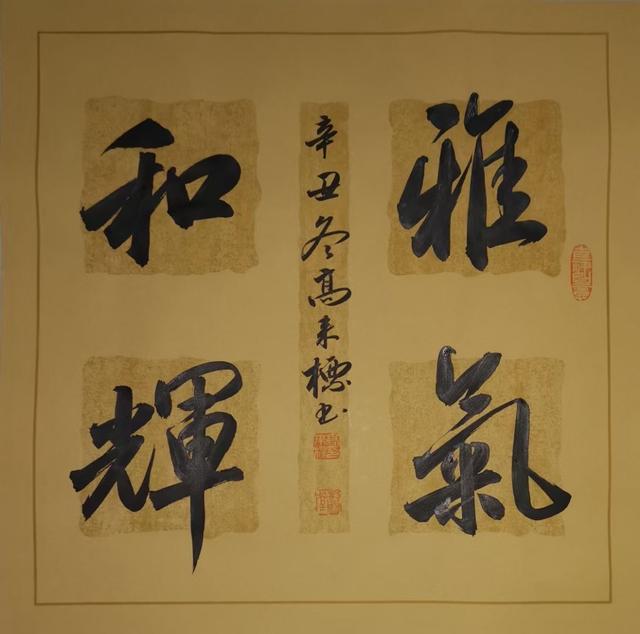 雅氣
和輝
辛丑冬高来標书